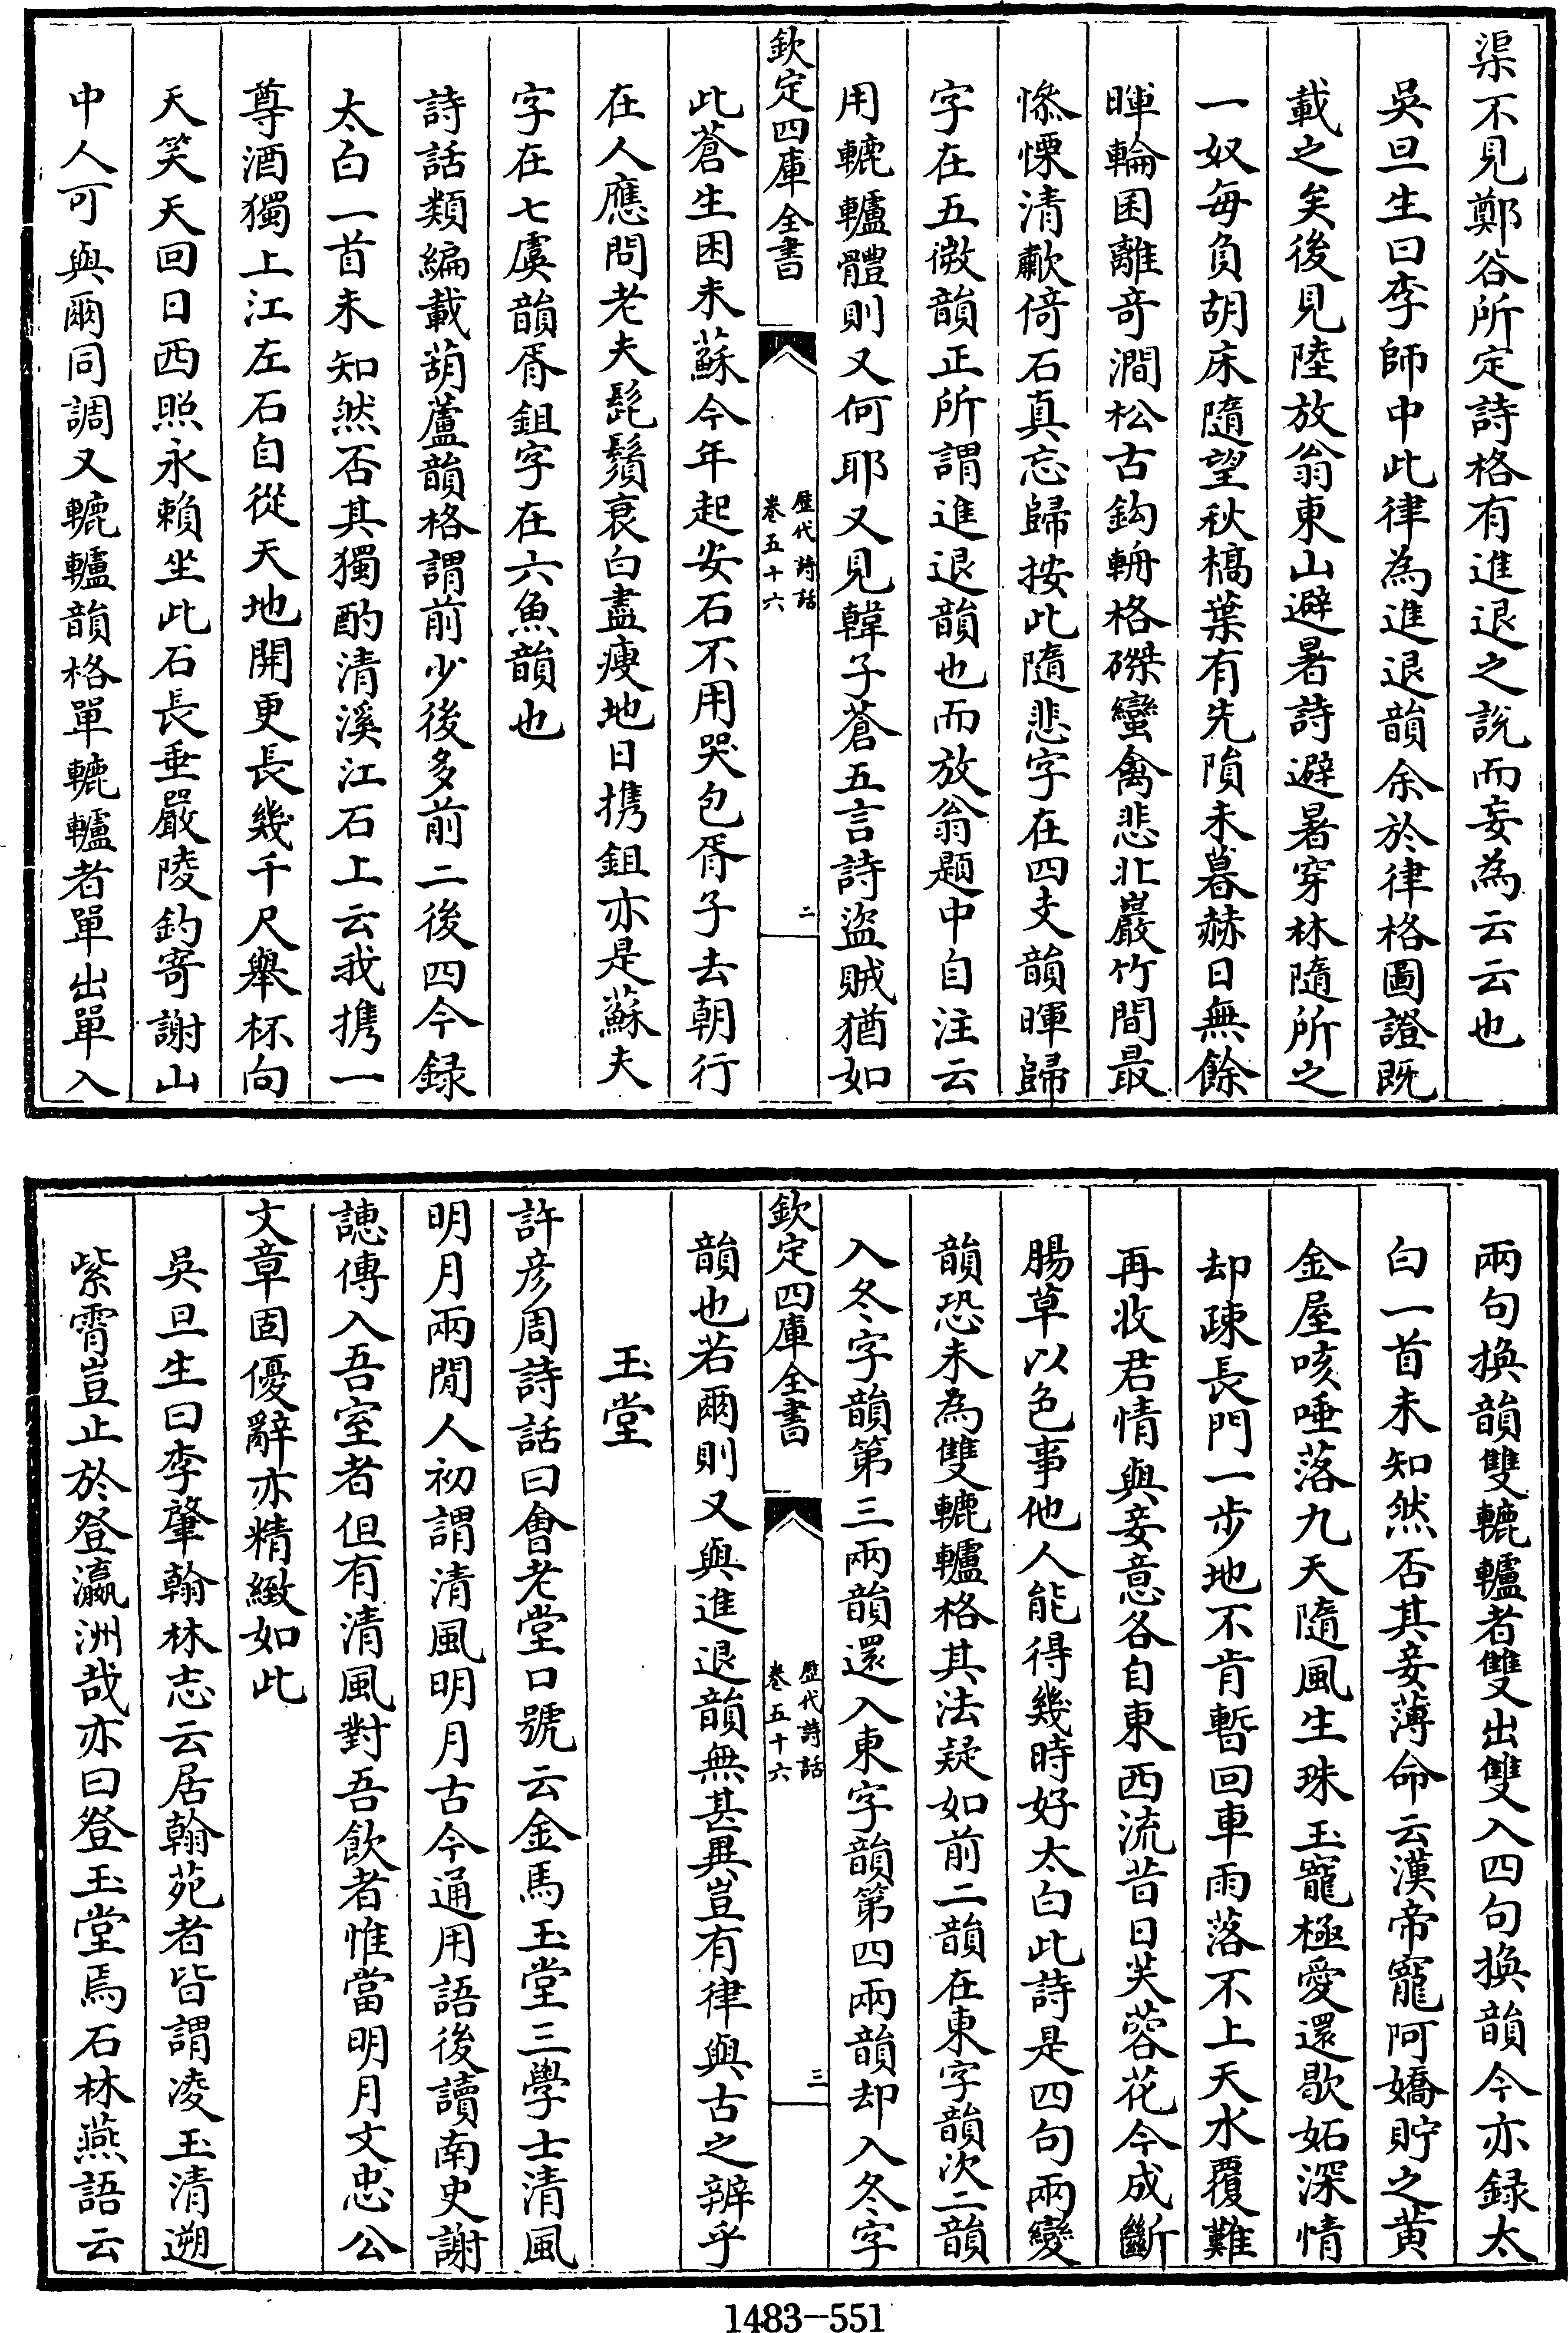 渠不見鄭谷所定詩格有進退之說而妄為云云也
吳旦生曰李師中此律為進退韻余於律格圖證既
載之矣後見陸放翁東山避暑詩避暑穿林隨所之
一奴每負胡床隨望秋槁葉有先隕未暮赫日無餘
暉輪囷離奇澗松古鈎輈格磔蠻禽悲北巖竹間最
慘慄清漱倚石真忘歸按此隨悲字在四支韻暉歸
字在五微韻正所謂進退韻也而放翁題中自注云
用轆轤體則又何耶又見韓子蒼五言詩盜賊猶如
欽定四庫全書
歷代詩話
卷五十六
二
此蒼生困未蘇今年起安石不用哭包胥子去朝行
在人應問老夫髭鬚衰白盡瘦地日携鉏亦是蘇夫
字在七虞韻胥鉏字在六魚韻也
詩話類編載葫蘆韻格謂前少後多前二後四今録
太白一首未知然否其獨酌清溪江石上云我携一
尊酒獨上江左石自從天地開更長幾千尺舉杯向
天笑天回日西照永賴坐此石長垂嚴陵釣寄謝山
中人可與爾同調又轆轤韻格單轆轤者單出單入
兩句換韻雙轆轤者雙出雙入四句換韻今亦録太
白一首未知然否其妾薄命云漢帝寵阿嬌貯之黃
金屋咳唾落九天隨風生珠玉寵極愛還歇妬深情
却疎長門一步地不肯暫回車雨落不上天水覆難
再收君情與妾意各自東西流昔日芙蓉花今成斷
腸草以色事他人能得幾時好太白此詩是四句兩變
韻恐未為雙轆轤格其法疑如前二韻在東字韻次二韻
入冬字韻第三兩韻還入東字韻第四兩韻却入冬字
欽定四庫全書
歷代詩話
卷五十六
三
韻也若爾則又與進退韻無甚異豈有律與古之辨乎
玉堂
許彥周詩話曰會老堂口號云金馬玉堂三學士清風
明月兩閒人初謂清風明月古今通用語後讀南史謝
譓傳入吾室者但有清風對吾飲者惟當明月文忠公
文章固優辭亦精緻如此
吳旦生曰李肇翰林志云居翰苑者皆謂凌玉清遡
紫霄豈止於登瀛洲哉亦曰登玉堂焉石林燕語云
1483-551